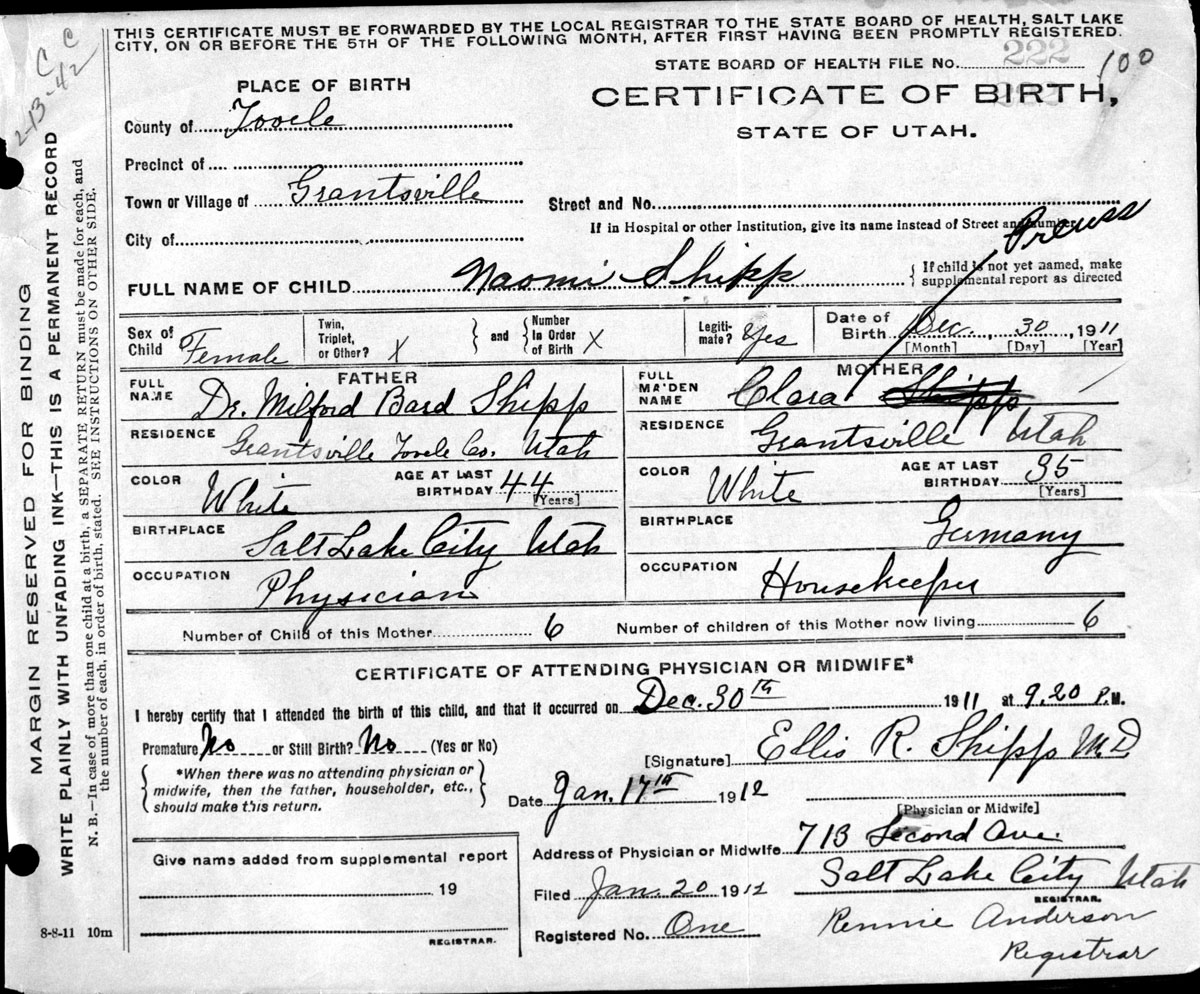 THIS CERTIFICATE MUST BE FORWARDED BY THE LOCAL REGISTRAR TO THE STATE BOARD OF HEALTH, SALT LAKE
CITY, ON OR BEFORE THE 5TH OF THE FOLLOWING MONTH, AFTER FIRST HAVING BEEN PROMPTLY REGISTERED.
STATE BOARD OF HEALTH FILE No. 222 100
PLACE OF BIRTH
CERTIFICATE OF BIRTH,
STATE OF UTAH.
County of Tooele
Precinct of
Town or Village of Grantsville
Street and No.
City of
If in Hospital or other Institution, give its name instead of Street and number
Preuss
FULL NAME OF CHILD Naomi Shipp
{ If child is not yet named, make
supplemental report as directed
Sex of Child Female
Twin, Triplet, or Other? X
} and {
Number in Order of Birth X
Legitimate? Yes
Date of Birth Dec. 30, 1911
[Month] [Day] [Year]
FATHER
FULL NAME Dr. Milford Bard Shipp
RESIDENCE Grantsville Tooele Co. Utah
COLOR White
AGE AT LAST BIRTHDAY 44
[Years]
BIRTHPLACE Salt Lake City Utah
OCCUPATION Physician
MOTHER
FULL MAIDEN NAME Clara Shipp
RESIDENCE Grantsville Utah
COLOR White
AGE AT LAST BIRTHDAY 35
[Years]
BIRTHPLACE Germany
OCCUPATION Housekeeper
Number of Child of this Mother 6
Number of children of this Mother now living 6
CERTIFICATE OF ATTENDING PHYSICIAN OR MIDWIFE*
I hereby certify that I attended the birth of this child, and that it occurred on Dec. 30th 1911 at 9.20 P.M.
Premature No or Still Birth? No (Yes or No)
[Signature] Ellis R. Shipp M.D
{ *When there was no attending physician or
midwife, then the father, householder, etc.,
should make this return. }
Date Jan. 17th 1912
[Physician or Midwife]
Address of Physician or Midwife 713 Second Ave.
Salt Lake City Utah
Give name added from supplemental report
19
REGISTRAR.
Filed Jan. 20 1912
REGISTRAR.
Registered No. One
Rennie Anderson
Registrar
8-8-11 10m
MARGIN RESERVED FOR BINDING
WRITE PLAINLY WITH UNFADING INK—THIS IS A PERMANENT RECORD
N. B.—In case of more than one child at a birth, a SEPARATE RETURN must be made for each, and
the number of each, in order of birth, stated. SEE INSTRUCTIONS ON OTHER SIDE.
2-13-42
C C